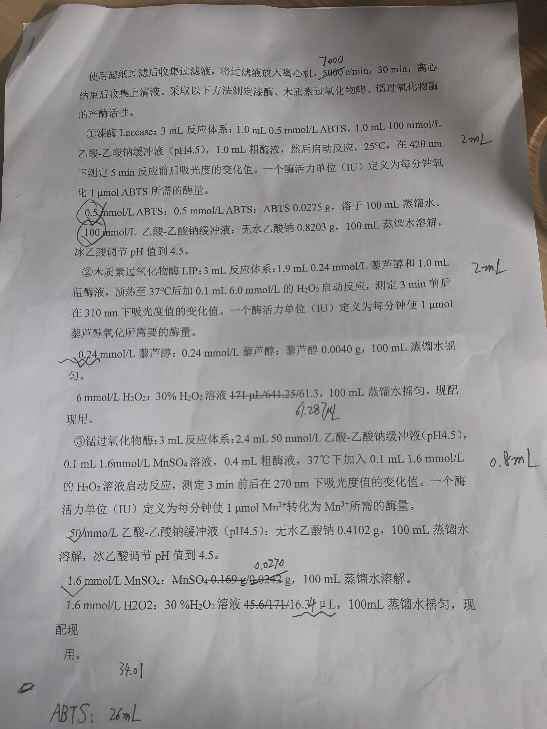 使后滤纸过滤后收集过滤液，将过滤液放入离心机，7000 5000 r/min，30 min，离心
结束后收集上清液。采取以下方法测定漆酶、木质素过氧化物酶、锰过氧化物酶
的产酶活性。
①漆酶 Laccase：3 mL 反应体系：1.0 mL 0.5 mmol/L ABTS，1.0 mL 100 mmol/L
乙酸-乙酸钠缓冲液（pH4.5），1.0 mL 粗酶液，然后启动反应，25℃，在 420 nm 2mL
下测定 5 min 反应前后吸光度的变化值。一个酶活力单位（IU）定义为每分钟氧
化 1 μmol ABTS 所需的酶量。
0.5 mmol/L ABTS：0.5 mmol/L ABTS：ABTS 0.0275 g，溶于 100 mL 蒸馏水。
100 mmol/L 乙酸-乙酸钠缓冲液：无水乙酸钠 0.8203 g，100 mL 蒸馏水溶解，
冰乙酸调节 pH 值到 4.5。
②木质素过氧化物酶 LIP：3 mL 反应体系：1.9 mL 0.24 mmol/L 藜芦醇和 1.0 mL 2mL
粗酶液，预热至 37℃后加 0.1 mL 6.0 mmol/L 的 H₂O₂ 启动反应，测定 3 min 前后
在 310 nm 下吸光度值的变化值。一个酶活力单位（IU）定义为每分钟使 1 μmol
藜芦醇氧化所需要的酶量。
0.24 mmol/L 藜芦醇：0.24 mmol/L 藜芦醇：藜芦醇 0.0040 g，100 mL 蒸馏水摇
匀。
6 mmol/L H₂O₂：30% H₂O₂ 溶液 171 μL/641.25/61.3，100 mL 蒸馏水摇匀，现配
现用。 61.287μL
③锰过氧化物酶：3 mL 反应体系：2.4 mL 50 mmol/L 乙酸-乙酸钠缓冲液（pH4.5），
0.1 mL 1.6mmol/L MnSO₄ 溶液，0.4 mL 粗酶液，37℃下加入 0.1 mL 1.6 mmol/L 0.8mL
的 H₂O₂ 溶液启动反应，测定 3 min 前后在 270 nm 下吸光度值的变化值。一个酶
活力单位（IU）定义为每分钟使 1 μmol Mn²⁺转化为 Mn³⁺所需的酶量。
50mmo/L 乙酸-乙酸钠缓冲液（pH4.5）：无水乙酸钠 0.4102 g，100 mL 蒸馏水
溶解，冰乙酸调节 pH 值到 4.5。
0.0270
1.6 mmol/L MnSO₄：MnSO₄ 0.169 g/0.0242 g，100 mL 蒸馏水溶解。
1.6 mmol/L H2O2：30 %H₂O₂ 溶液 45.6/171/16.34 μL，100mL 蒸馏水摇匀，现
配现
用。
34.01
ABTS： 26mL